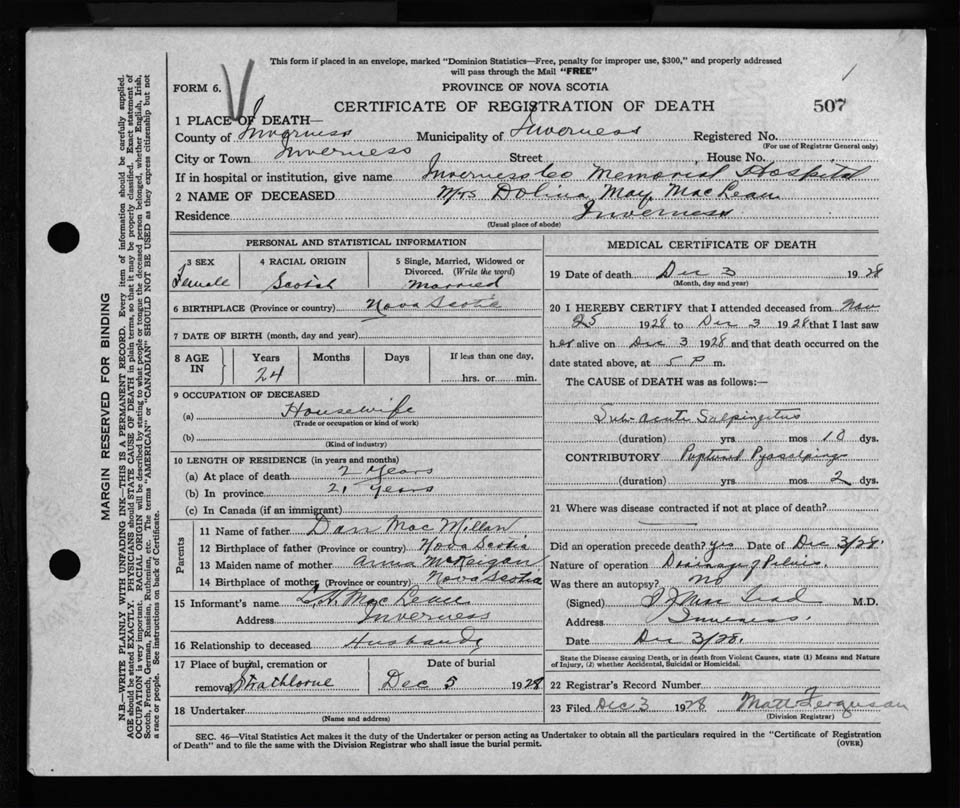 This form if placed in an envelope, marked "Dominion Statistics—Free, penalty for improper use, $300," and properly addressed
will pass through the Mail "FREE"
FORM 6.
PROVINCE OF NOVA SCOTIA
1
CERTIFICATE OF REGISTRATION OF DEATH
507
1 PLACE OF DEATH—
County of Inverness Municipality of Inverness Registered No.
(For use of Registrar General only)
City or Town Inverness Street House No.
If in hospital or institution, give name Inverness Co Memorial Hospital
2 NAME OF DECEASED Mrs Dolina May MacLean
Residence Inverness
(Usual place of abode)
PERSONAL AND STATISTICAL INFORMATION
3 SEX Female
4 RACIAL ORIGIN Scotch
5 Single, Married, Widowed or Divorced. (Write the word) Married
6 BIRTHPLACE (Province or country) Nova Scotia
7 DATE OF BIRTH (month, day and year)
8 AGE IN Years 24 Months Days If less than one day, hrs. or min.
9 OCCUPATION OF DECEASED
(a) Housewife
(Trade or occupation or kind of work)
(b)
(Kind of industry)
10 LENGTH OF RESIDENCE (in years and months)
(a) At place of death 2 Years
(b) In province 21 Years
(c) In Canada (if an immigrant)
Parents
11 Name of father Dan MacMillan
12 Birthplace of father (Province or country) Nova Scotia
13 Maiden name of mother Anna McKeigan
14 Birthplace of mother (Province or country) Nova Scotia
15 Informant's name MacLean
Address Inverness
16 Relationship to deceased Husband
17 Place of burial, cremation or removal Strathlorne
Date of burial Dec 5 1928
18 Undertaker
(Name and address)
MEDICAL CERTIFICATE OF DEATH
19 Date of death Dec 3 1928
(Month, day and year)
20 I HEREBY CERTIFY that I attended deceased from Nov
25 1928 to Dec 3 1928 that I last saw
her alive on Dec 3 1928 and that death occurred on the
date stated above, at 5 P m.
The CAUSE of DEATH was as follows:—
Sub-acute Salpingitus
(duration) yrs. mos 10 dys.
CONTRIBUTORY Ruptured Pyosalpinx
(duration) yrs. mos 2 dys.
21 Where was disease contracted if not at place of death?
Did an operation precede death? yes Date of Dec 3/28.
Nature of operation Drainage of Pelvis.
Was there an autopsy? No
(Signed) M.D.
Address Inverness.
Date Dec 3/28.
State the Disease causing Death, or in death from Violent Causes, state (1) Means and Nature
of Injury, (2) whether Accidental, Suicidal or Homicidal.
22 Registrar's Record Number
23 Filed Dec 3 1928 Matt Ferguson
(Division Registrar)
SEC. 46—Vital Statistics Act makes it the duty of the Undertaker or person acting as Undertaker to obtain all the particulars required in the "Certificate of Registration
of Death" and to file the same with the Division Registrar who shall issue the burial permit. (OVER)
MARGIN RESERVED FOR BINDING
N.B.—WRITE PLAINLY WITH UNFADING INK—THIS IS A PERMANENT RECORD. Every item of information should be carefully supplied.
AGE should be stated EXACTLY. PHYSICIANS should STATE CAUSE OF DEATH in plain terms, so that it may be properly classified. Exact statement of
OCCUPATION is very important. RACIAL ORIGIN will be described by stating to what people or tongue the deceased person belonged, whether English, Irish,
Scotch, French, German, Russian, Ruthenian, etc. The terms "AMERICAN" or "CANADIAN" SHOULD NOT BE USED as they express citizenship but not
a race or people. See instructions on back of Certificate.